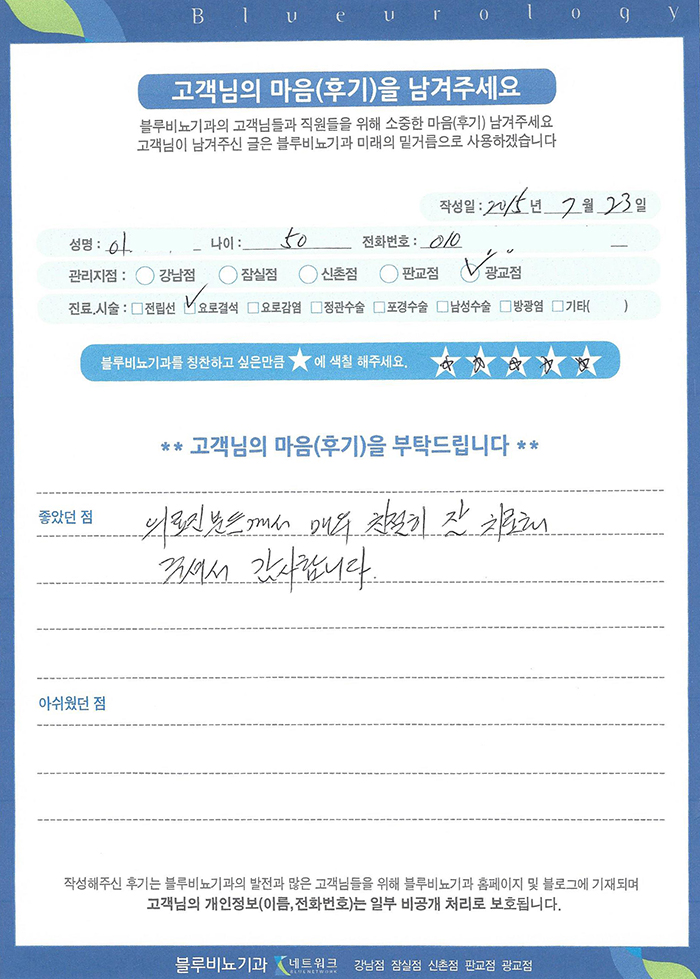 Blueurology
고객님의 마음(후기)을 남겨주세요
블루비뇨기과의 고객님들과 직원들을 위해 소중한 마음(후기) 남겨주세요
고객님이 남겨주신 글은 블루비뇨기과 미래의 밑거름으로 사용하겠습니다
작성일 : 2015 년 7 월 23 일
성명 : 이 나이 : 50 전화번호 : 010
관리지점 : 강남점 잠실점 신촌점 판교점 광교점
진료.시술 : 전립선 요로결석 요로감염 정관수술 포경수술 남성수술 방광염 기타( )
블루비뇨기과를 칭찬하고 싶은만큼 ★에 색칠 해주세요.
** 고객님의 마음(후기)을 부탁드립니다 **
좋았던 점
의료진분들께서 매우 친절히 잘 치료해
주셔서 감사합니다.
아쉬웠던 점
작성해주신 후기는 블루비뇨기과의 발전과 많은 고객님들을 위해 블루비뇨기과 홈페이지 및 블로그에 기재되며
고객님의 개인정보(이름,전화번호)는 일부 비공개 처리로 보호됩니다.
블루비뇨기과 네트워크 BLUE NETWORK 강남점 잠실점 신촌점 판교점 광교점